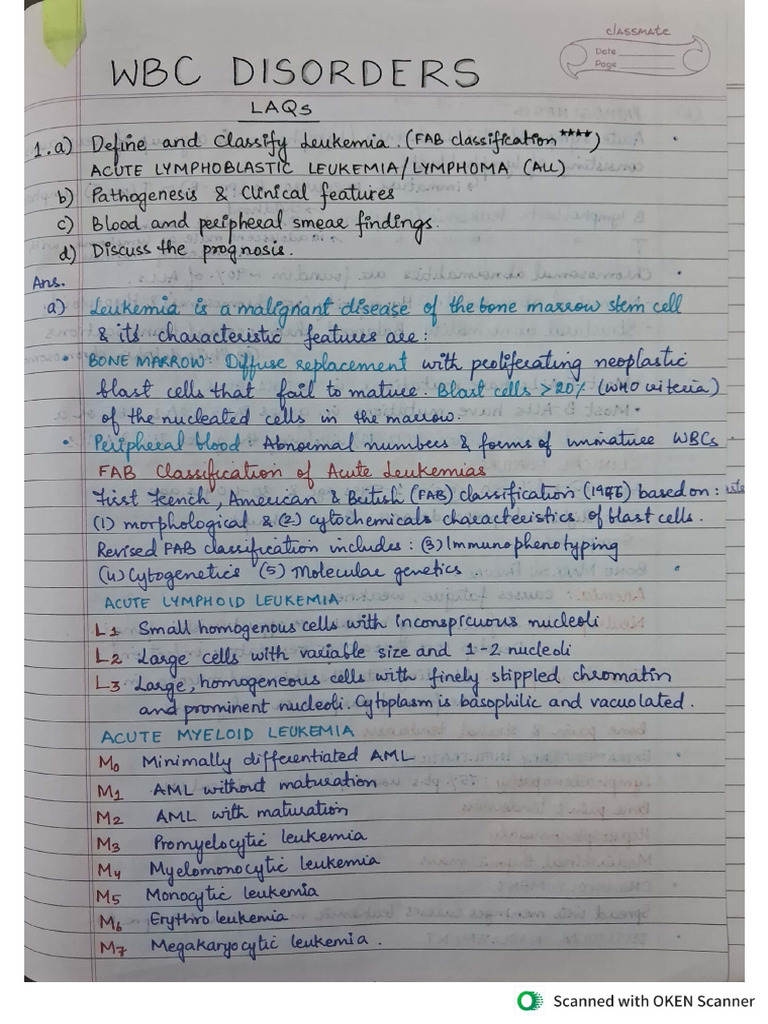 classmate
Date
Page
WBC DISORDERS
LAQs
1. a) Define and Classify Leukemia. (FAB classification ****)
ACUTE LYMPHOBLASTIC LEUKEMIA/LYMPHOMA (ALL)
b) Pathogenesis & Clinical features
c) Blood and peripheral smear findings.
d) Discuss the prognosis.
Ans.
a) Leukemia is a malignant disease of the bone marrow stem cell
& its characteristic features are:
• BONE MARROW: Diffuse replacement with proliferating neoplastic
blast cells that fail to mature. Blast cells >20% (WHO criteria)
of the nucleated cells in the marrow.
• Peripheral blood: Abnormal numbers & forms of immature WBCs
FAB Classification of Acute Leukemias
First French, American & British (FAB) classification (1976) based on:
(1) morphological & (2) cytochemicals characteristics of blast cells.
Revised FAB classification includes: (3) Immunophenotyping
(4) Cytogenetics (5) Molecular genetics.
ACUTE LYMPHOID LEUKEMIA
L1 Small homogenous cells with inconspicuous nucleoli
L2 Large cells with variable size and 1-2 nucleoli
L3 Large, homogeneous cells with finely stippled chromatin
and prominent nucleoli. Cytoplasm is basophilic and vacuolated.
ACUTE MYELOID LEUKEMIA
M0 Minimally differentiated AML
M1 AML without maturation
M2 AML with maturation
M3 Promyelocytic leukemia
M4 Myelomonocytic leukemia
M5 Monocytic leukemia
M6 Erythroleukemia
M7 Megakaryocytic leukemia.
Scanned with OKEN Scanner